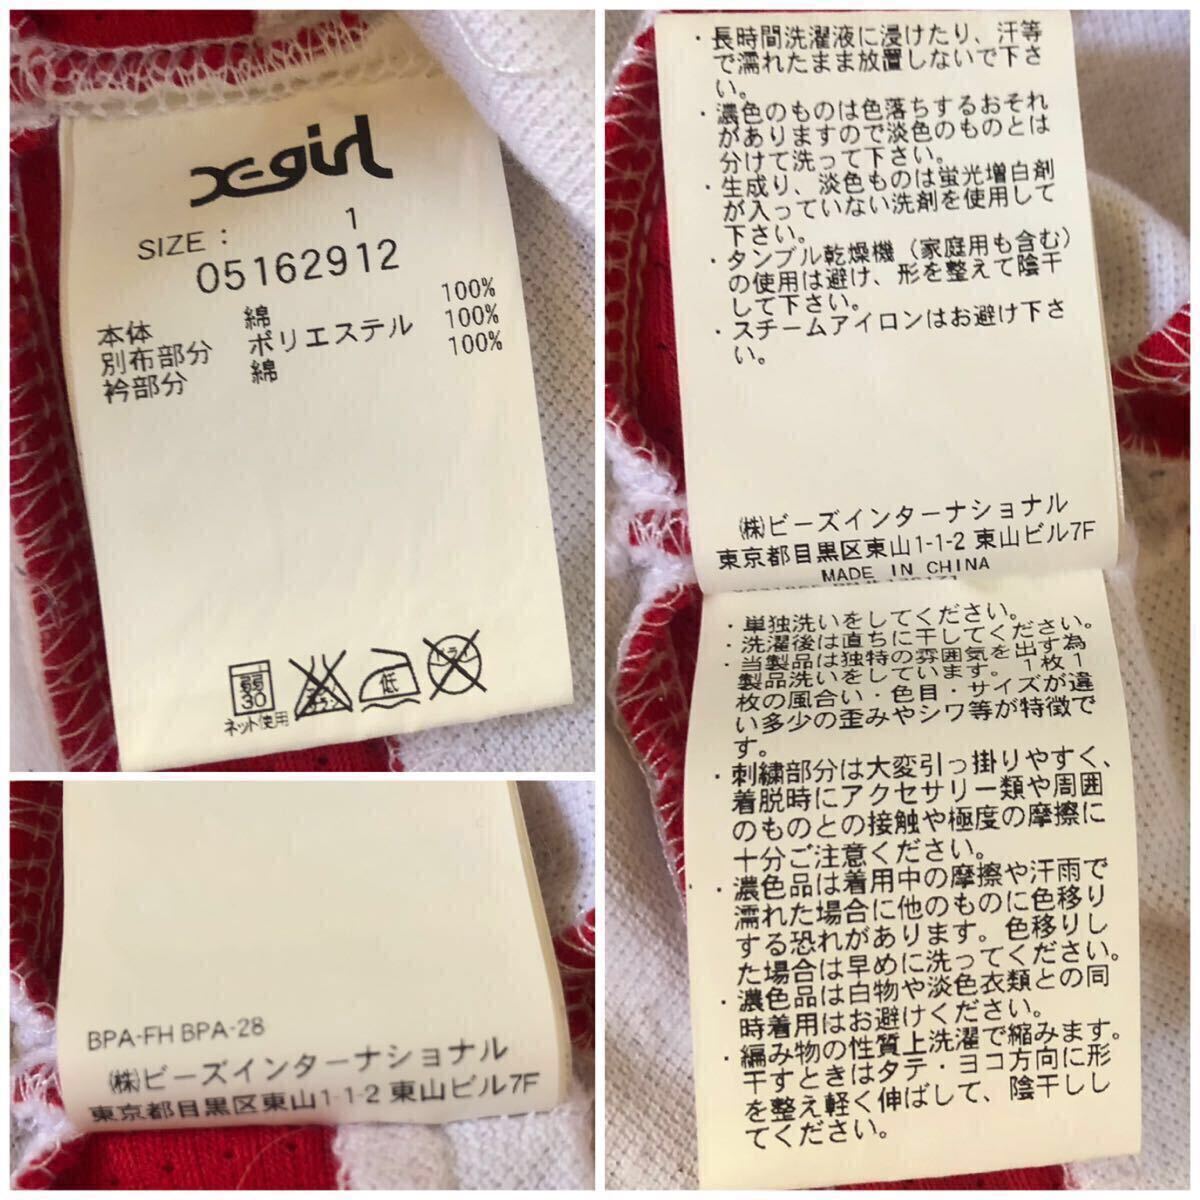 X-girl
SIZE : 1
05162912
本体 綿 100%
別布部分 ポリエステル 100%
衿部分 綿 100%
弱
30
ネット使用
低
BPA-FH BPA-28
㈱ビーズインターナショナル
東京都目黒区東山1-1-2 東山ビル7F
・長時間洗濯液に浸けたり、汗等
で濡れたまま放置しないで下さ
い。
・濃色のものは色落ちするおそれ
がありますので淡色のものとは
分けて洗って下さい。
・生成り、淡色ものは蛍光増白剤
が入っていない洗剤を使用して
下さい。
・タンブル乾燥機（家庭用も含む）
の使用は避け、形を整えて陰干
して下さい。
・スチームアイロンはお避け下さ
い。
㈱ビーズインターナショナル
東京都目黒区東山1-1-2 東山ビル7F
MADE IN CHINA
・単独洗いをしてください。
・洗濯後は直ちに干してください。
・当製品は独特の雰囲気を出す為
製品洗いをしています。1枚1
枚の風合い・色目・サイズが違
い多少の歪みやシワ等が特徴で
す。
・刺繍部分は大変引っ掛りやすく、
着脱時にアクセサリー類や周囲
のものとの接触や極度の摩擦に
十分ご注意ください。
・濃色品は着用中の摩擦や汗雨で
濡れた場合に他のものに色移り
する恐れがあります。色移りし
た場合は早めに洗ってください。
・濃色品は白物や淡色衣類との同
時着用はお避けください。
・編み物の性質上洗濯で縮みます。
干すときはタテ・ヨコ方向に形
を整え軽く伸ばして、陰干しし
てください。